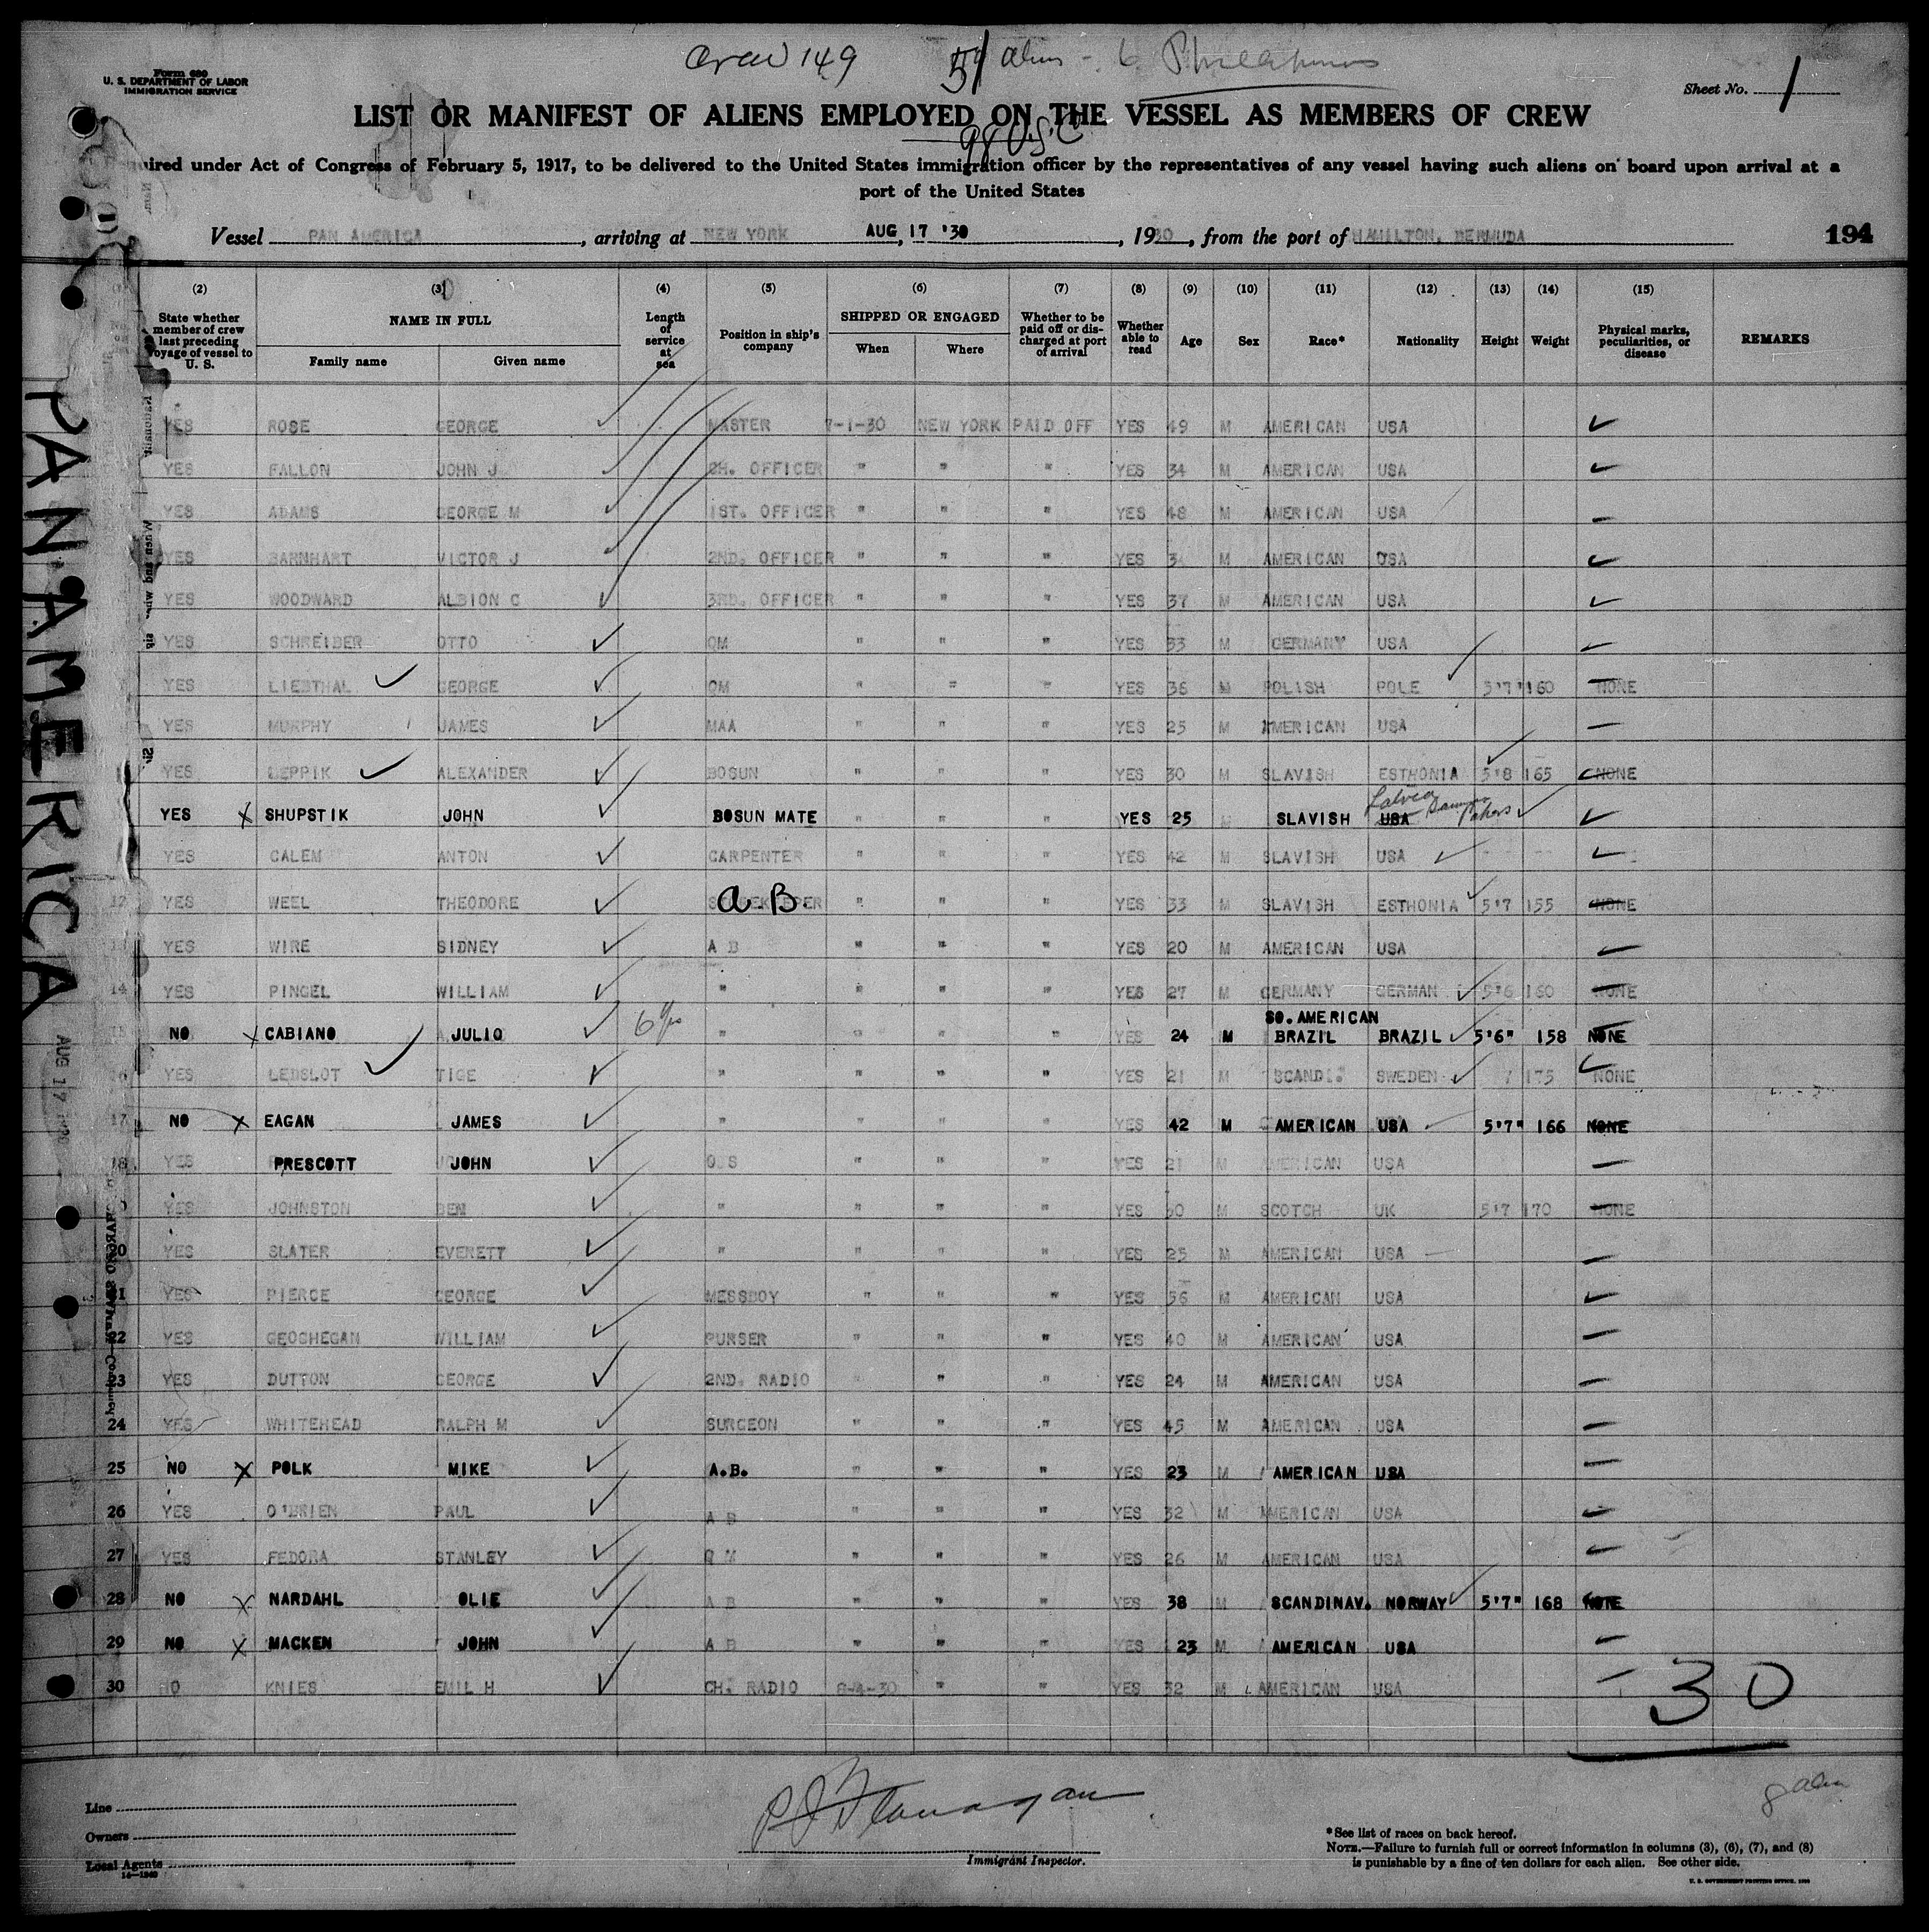 Crew 149 51 alien - 6 Phillipinos
98 U.S.C
Form 680
U. S. DEPARTMENT OF LABOR
IMMIGRATION SERVICE
Sheet No. 1
LIST OR MANIFEST OF ALIENS EMPLOYED ON THE VESSEL AS MEMBERS OF CREW
uired under Act of Congress of February 5, 1917, to be delivered to the United States immigration officer by the representatives of any vessel having such aliens on board upon arrival at a
port of the United States
Vessel PAN AMERICA, arriving at NEW YORK AUG 17 '30, 1930, from the port of HAMILTON, BERMUDA 194
(2) (3) (4) (5) (6) (7) (8) (9) (10) (11) (12) (13) (14) (15)
State whether member of crew last preceding voyage of vessel to U. S.
NAME IN FULL
Family name Given name
Length of service at sea
Position in ship's company
SHIPPED OR ENGAGED
When Where
Whether to be paid off or discharged at port of arrival
Whether able to read
Age Sex Race* Nationality Height Weight
Physical marks, peculiarities, or disease
REMARKS
YES ROSE GEORGE MASTER 7-1-30 NEW YORK PAID OFF YES 49 M AMERICAN USA
YES FALLON JOHN J CH. OFFICER " " " YES 34 M AMERICAN USA
YES ADAMS GEORGE M 1ST. OFFICER " " " YES 48 M AMERICAN USA
YES BARNHART VICTOR J 2ND. OFFICER " " " YES M AMERICAN USA
YES WOODWARD ALBION C 3RD. OFFICER " " " YES 37 M AMERICAN USA
YES SCHREIBER OTTO QM " " " YES 33 M GERMANY USA
YES LIESTHAL GEORGE QM " " " YES 36 M POLISH POLE 5'7" 160 NONE
YES MURPHY JAMES MAA " " " YES 25 M AMERICAN USA
YES LEPPIK ALEXANDER BOSUN " " " YES 30 M SLAVISH ESTHONIA 5'8 165 NONE
YES X SHUPSTIK JOHN BOSUN MATE " " " YES 25 M SLAVISH USA Latvia
YES CALEM ANTON CARPENTER " " " YES 42 M SLAVISH USA
12 YES WEEL THEODORE a B. " " " YES 33 M SLAVISH ESTHONIA 5'7 155 NONE
13 YES WIRE SIDNEY A B " " " YES 20 M AMERICAN USA
14 YES PINGEL WILLIAM " " " " YES 27 M GERMANY GERMAN 5'6 160 NONE
15 NO X CABIANO JULIO 6 yrs " " " " YES 24 M SO. AMERICAN BRAZIL BRAZIL 5'6" 158 NONE
16 YES LEDSLOT TIGE " " " " YES 21 M SCAND. SWEDEN 175 NONE
17 NO X EAGAN JAMES " " " " YES 42 M AMERICAN USA 5'7" 166 NONE
18 YES PRESCOTT JOHN O S " " " YES 21 M AMERICAN USA
YES JOHNSTON BEN " " " " YES 30 M SCOTCH UK 5'7 170 NONE
20 YES SLATER EVERETT " " " " YES 25 M AMERICAN USA
21 YES PIERCE GEORGE MESSBOY " " " YES 56 M AMERICAN USA
22 YES GEOGHEGAN WILLIAM PURSER " " " YES 40 M AMERICAN USA
23 YES DUTTON GEORGE 2ND. RADIO " " " YES 24 M AMERICAN USA
24 YES WHITEHEAD RALPH M SURGEON " " " YES 45 M AMERICAN USA
25 NO X POLK MIKE A.B. " " " YES 23 M AMERICAN USA
26 YES O'BRIEN PAUL A B " " " YES 32 M AMERICAN USA
27 YES FEDORA STANLEY Q M " " " YES 26 M AMERICAN USA
28 NO X NARDAHL OLIE A B " " " YES 38 M SCANDINAV. NORWAY 5'7" 168 NONE
29 NO X MACKEN JOHN A B " " " YES 23 M AMERICAN USA
30 NO KNIES EMIL H CH. RADIO 8-4-30 " " YES 32 M AMERICAN USA
30
8 alien
PAN AMERICA
AUG 17
Line
Owners
Local Agents
14—1240
P J Flanagan
Immigrant Inspector.
*See list of races on back hereof.
NOTE.—Failure to furnish full or correct information in columns (3), (6), (7), and (8)
is punishable by a fine of ten dollars for each alien. See other side.
U. S. GOVERNMENT PRINTING OFFICE